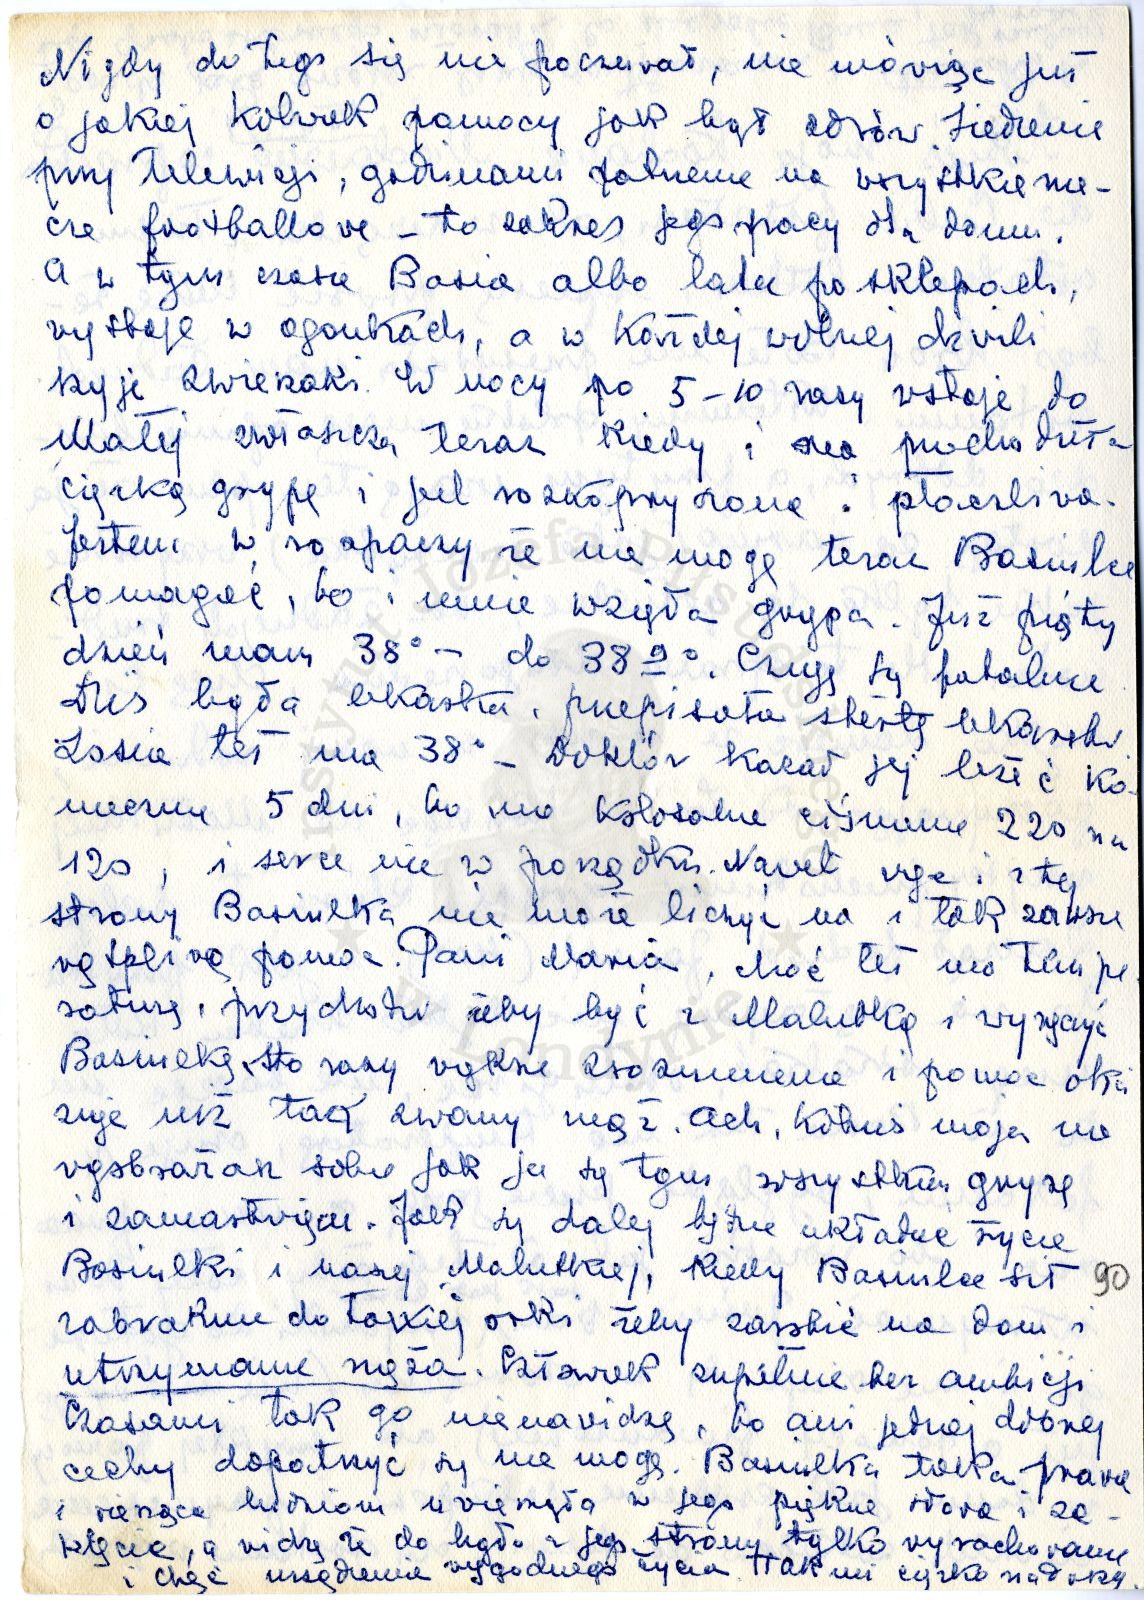 Nigdy do tego się nie poczuwał, nie mówiąc już
o jakiej kolwiek pomocy jak był zdrów. Siedzenie
przy telewizji, godzinami patrzenie na wszystkie me-
cze footballowe – to zakres jego pracy dla domu.
A w tym czasie Basia albo lata po sklepach,
wystaje w ogonkach, a w każdej wolnej chwili
szyje zwierzaki. W nocy po 5–10 razy wstaje do
Małej zwłaszcza teraz kiedy i ona przechodziła
ciężką grypę i jest rozkapryszona i płaczliwa.
Jestem w rozpaczy że nie mogę teraz Basiulce
pomagać, bo i mnie wzięła grypa. Już piąty
dzień mam 38° – do 38 9°. Czuję się fatalnie
Dziś była lekarka, przepisała stertę lekarstw.
Zosia też ma 38° – Doktór kazał jej leżeć ko-
niecznie 5 dni, bo ma kolosalne ciśnienie 220 na
120, i serce nie w porządku. Nawet więc i z tej
strony Basiulka nie może liczyć na i tak zawsze
wątpliwą pomoc. Pani Maria, choć też ma tempe-
raturę, przychodzi żeby być z Malutką i wyręczyć
Basiulkę. Sto razy większe zrozumienie i pomoc oka
zuje niż tak zwany mąż. Ach, Kotuś moja nie
wyobrażasz sobie jak ja się tym wszystkim gryzę
i zamartwiam. Jak się dalej będzie układać życie
Basiulki i naszej Malutkiej, kiedy Basiulce sił 90
zabraknie do takiej orki żeby zarobić na dom i
utrzymanie męża. Człowiek zupełnie bez ambicji
Czasami tak go nienawidzę, bo ani jednej dobrej
cechy dopatrzyć się nie mogę. Basiulka taka prawa
i wierząca ludziom uwierzyła w jego piękne słowa i za-
klęcia, a widzę że to było z jego strony tylko wyrachowanie
i chęć urządzenia wygodnego życia. Tak mi ciężko
Instytut Józefa Piłsudskiego
w Londynie